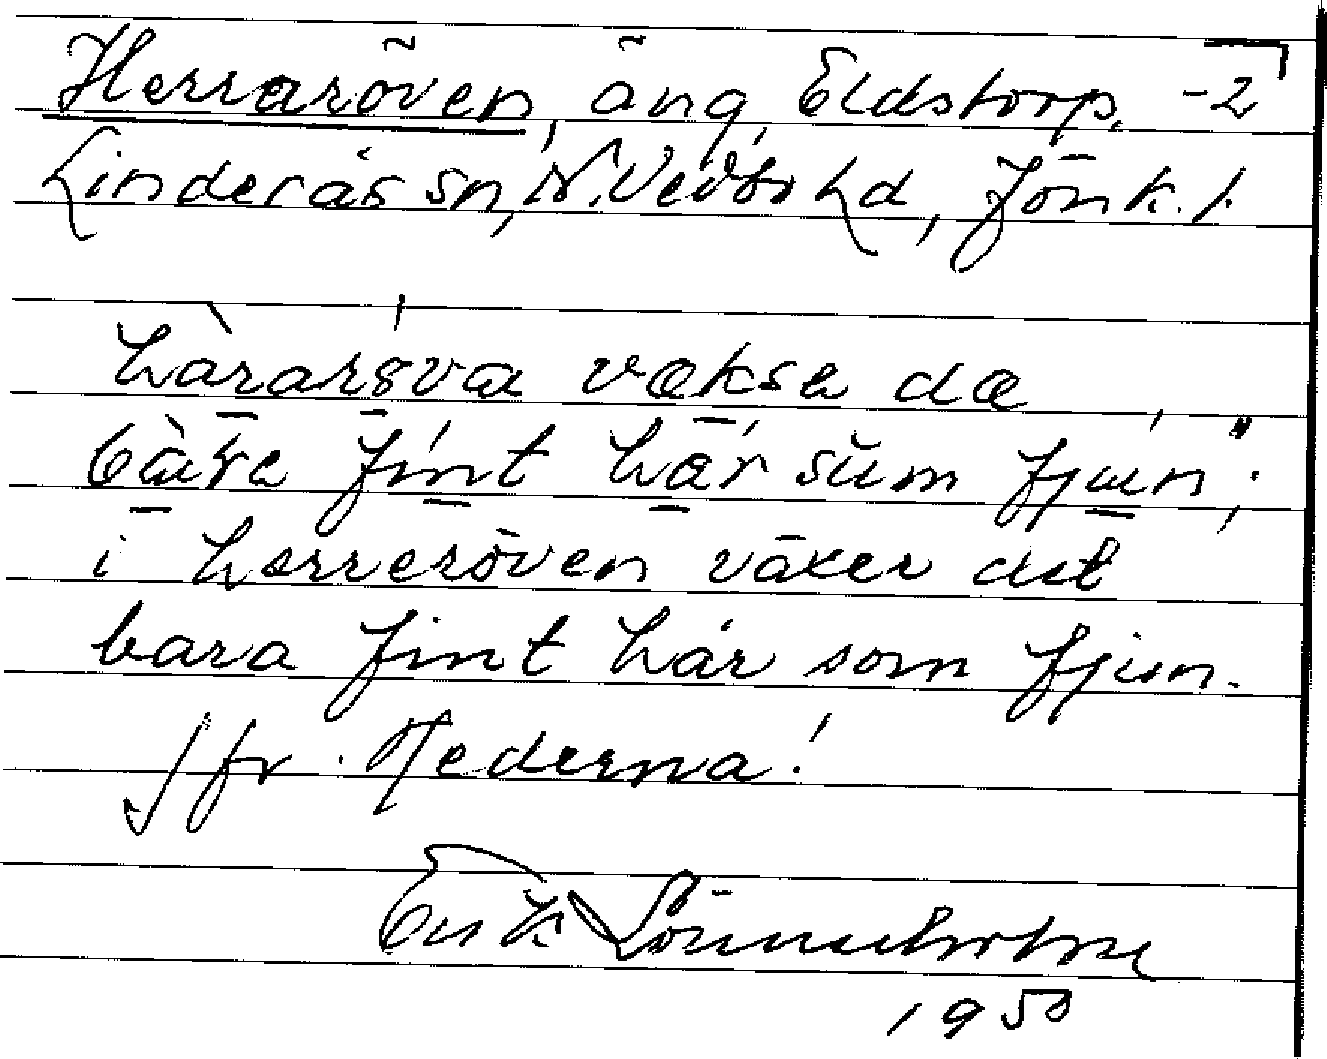 Herraröven, äng, Eldstorp, -2
Linderås sn, N. Vedbo hd, Jönk. l.
hàraröva væksa dæ
bàra fint hår sum fjun";
i herreröven växer det
bara fint hår som fjun.
Jfr. Mederna!
Erik Lönnerholm
1950